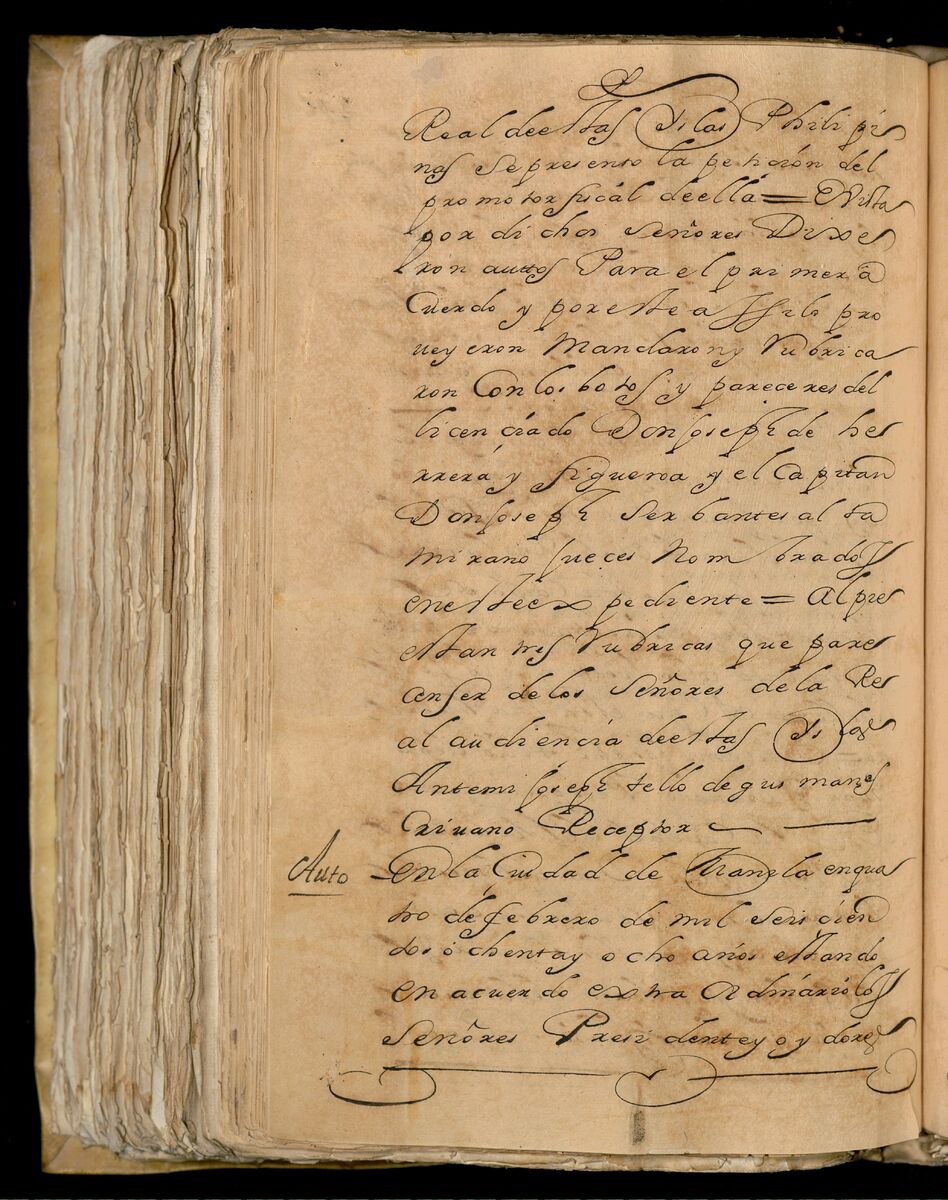 Real deestas Yslas Philipi
nas Sepresento la peticion del
promotor fiscál deella = Evista
por dichos Señores Dixe
ron auttos Para el primera
Cuerdo y poreste assilo pro
ueyeron Mandaron y Rubrica
ron Conlos botos y pareceres del
licenciado Don Joseph de he
rrera y figueroa y el Capitan
Don Joseph Serbantes alta
mirano Jueces Nombrados
eneste expediente = Al pie
estan tres Rubricas que pare
censer delos Señores dela Re
al audiencia deestas Yslas
Antemi Joseph tello de gusmanes
Criuano Receptor
Auto
En la Ciudad de Manila enqua
tro de febrero de mil Seis cien
tos ochenta y ocho años estando
en acuerdo extra Ordinario los
Señores Presidente y oydores